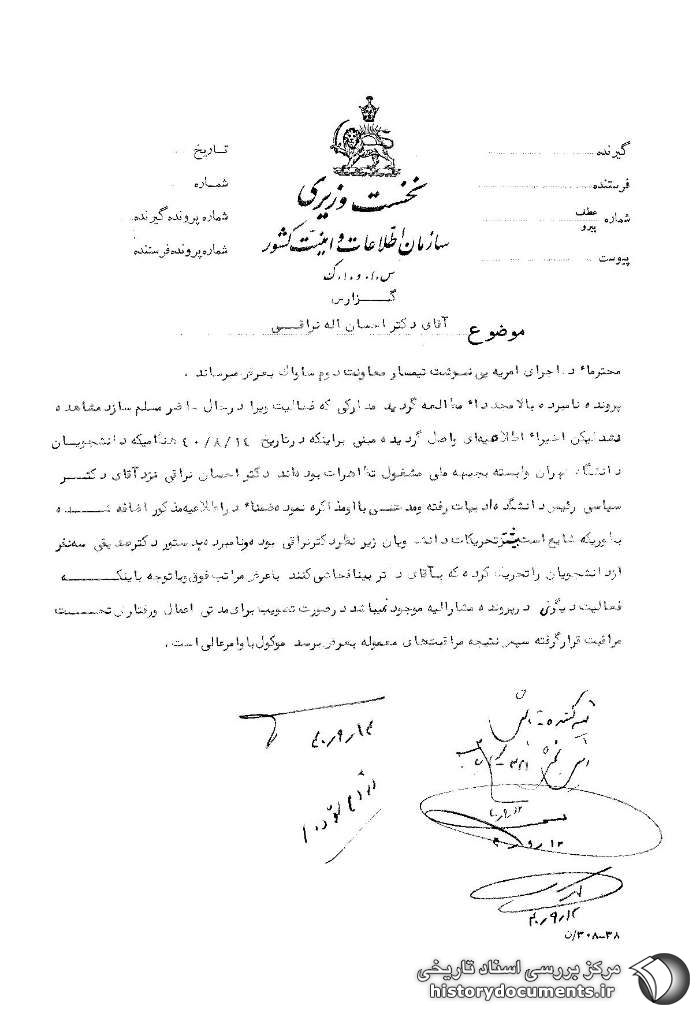 نخست وزیری
سازمان اطلاعات و امنیت کشور
س.ا.و.ا.ک
گیرنده
فرستنده
شماره عطف پیرو
پیوست
تاریخ
شماره
شماره پرونده گیرنده
شماره پرونده فرستنده
گزارش
موضوع آقای دکتر احسان اله نراقی
محترماً در اجرای امریه پی نوشت تیمسار معاونت دوم ساواک بعرض میرساند .
پرونده نامبرده بالا مجدداً مطالعه گردید مدارکی که فعالیت ویرا در حال حاضر مسلم سازد مشاهده
نشد لیکن اخیراً اطلاعیه‌ای واصل گردیده مبنی براینکه در تاریخ ۴۰/۸/۱۴ هنگامیکه دانشجویان
دانشگاه تهران وابسته بجبهه ملی مشغول تظاهرات بوده‌اند دکتر احسان نراقی نزد آقای دکتر
سیاسی رئیس دانشکده ادبیات رفته و مدتی با او مذاکره نموده ضمناً در اطلاعیه مذکور اضافه شده
بطوریکه شایع است بیشتر تحریکات دانشجویان زیر نظر دکتر نراقی بوده و نامبرده بدستور دکتر صدیقی سه نفر
از دانشجویان را تحریک کرده که بآقای دکتر بینا فحاشی کنند باعرض مراتب فوق و با توجه باینکه
فعالیت دیگری در پرونده مشارالیه موجود نمیباشد در صورت تصویب برای مدتی اعمال و رفتار وی تحت
مراقبت قرار گرفته سپس نتیجه مراقبت‌های معموله بعرض برسد موکول باوامر عالی است .
۴۰/۹/۱۲
۴۰/۹/۱۲
۴۰/۹/۱۲
ن/۳۰۸-۳۸
مرکز بررسی اسناد تاریخی
historydocuments.ir